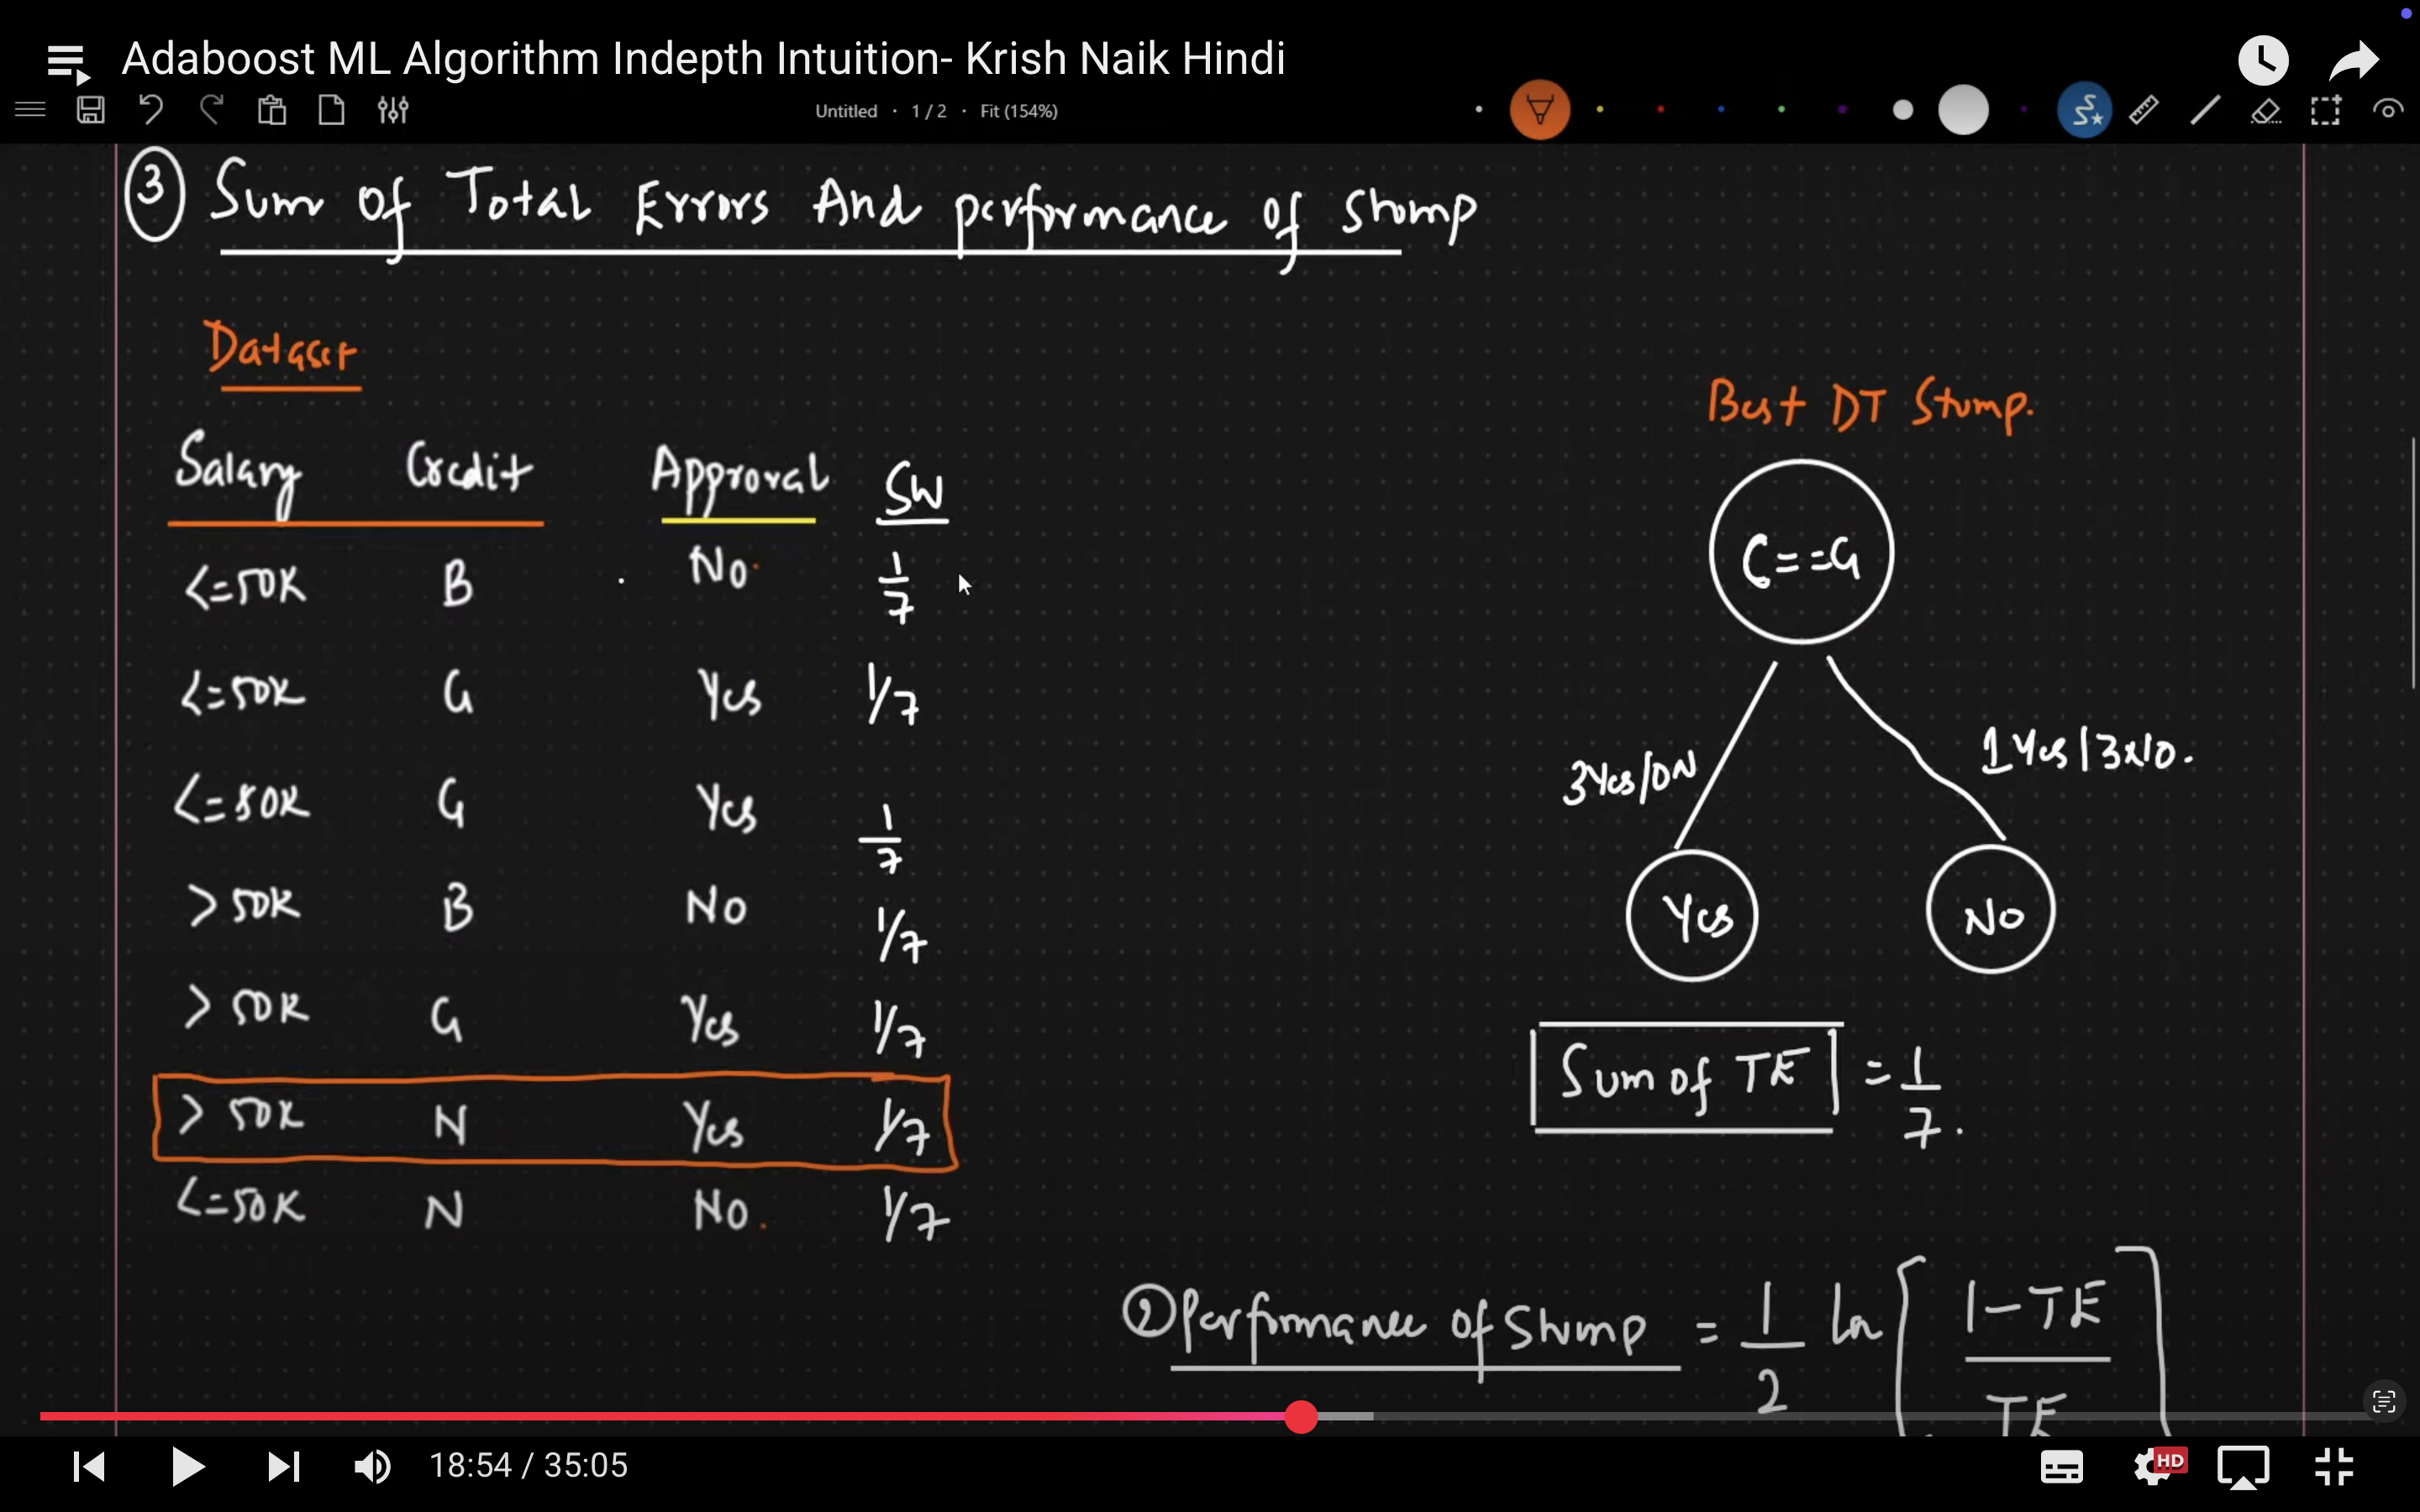 Adaboost ML Algorithm Indepth Intuition- Krish Naik Hindi
Untitled · 1 / 2 · Fit (154%)
③ Sum of Total Errors And performance of Stump
Dataset
Best DT Stump.
Salary Credit Approval SW
<=50K B No 1/7
<=50K G Yes 1/7
<=50K G Yes 1/7
>50K B No 1/7
>50K G Yes 1/7
>50K N Yes 1/7
<=50K N No 1/7
C==G
3Yes/0N 1Yes|3No.
Yes No
Sum of TE = 1/7.
② Performance of Stump = 1/2 ln [ 1-TE / TE ]
18:54 / 35:05
HD